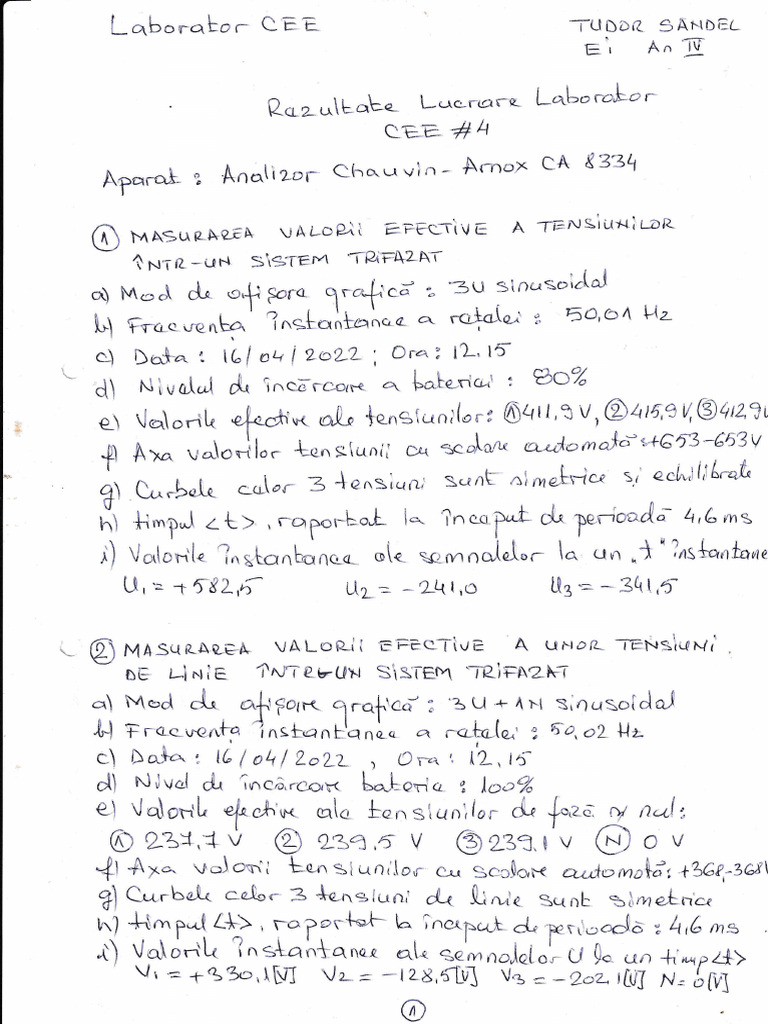 Laborator CEE
TUDOR SANDEL
Ei An IV
Razultate Lucrare Laborator
CEE #4
Aparat : Analizor Chauvin-Arnox CA 8334
① MASURAREA VALORII EFECTIVE A TENSIUNILOR
ÎNTR-UN SISTEM TRIFAZAT
a) Mod de afișare grafică : 3U sinusoidal
b) Frecvența instantanee a rețelei : 50,01 Hz
c) Data : 16/04/2022 ; Ora : 12.15
d) Nivelul de încărcare a bateriei : 80%
e) Valorile efective ale tensiunilor: ①411,9V, ②415,9V, ③412,9V
f) Axa valorilor tensiunii cu scalare automată :+653-653V
g) Curbele celor 3 tensiuni sunt simetrice și echilibrate
h) timpul <t>, raportat la început de perioadă 4,6 ms
i) Valorile instantanee ale semnalelor la un „t" instantane
U₁ = +582,5 U₂ = -241,0 U₃ = -341,5
② MASURAREA VALORII EFECTIVE A UNOR TENSIUNI
DE LINIE ÎNTR-UN SISTEM TRIFAZAT
a) Mod de afișare grafică : 3U+1N sinusoidal
b) Frecvența instantanee a rețelei : 50,02 Hz
c) Data : 16/04/2022 , Ora : 12,15
d) Nivel de încărcare baterie : 100%
e) Valorile efective ale tensiunilor de fază și nul:
① 237,7 V ② 239,5 V ③ 239,1 V Ⓝ 0 V
f) Axa valorii tensiunilor cu scalare automată: +368,-368V
g) Curbele celor 3 tensiuni de linie sunt simetrice
h) timpul <t>, raportat la început de perioadă : 4,6 ms
i) Valorile instantanee ale semnalelor U la un timp <t>
V₁ = +330,1[V] V₂ = -128,5[V] V₃ = -202,1[V] N = 0[V]
①